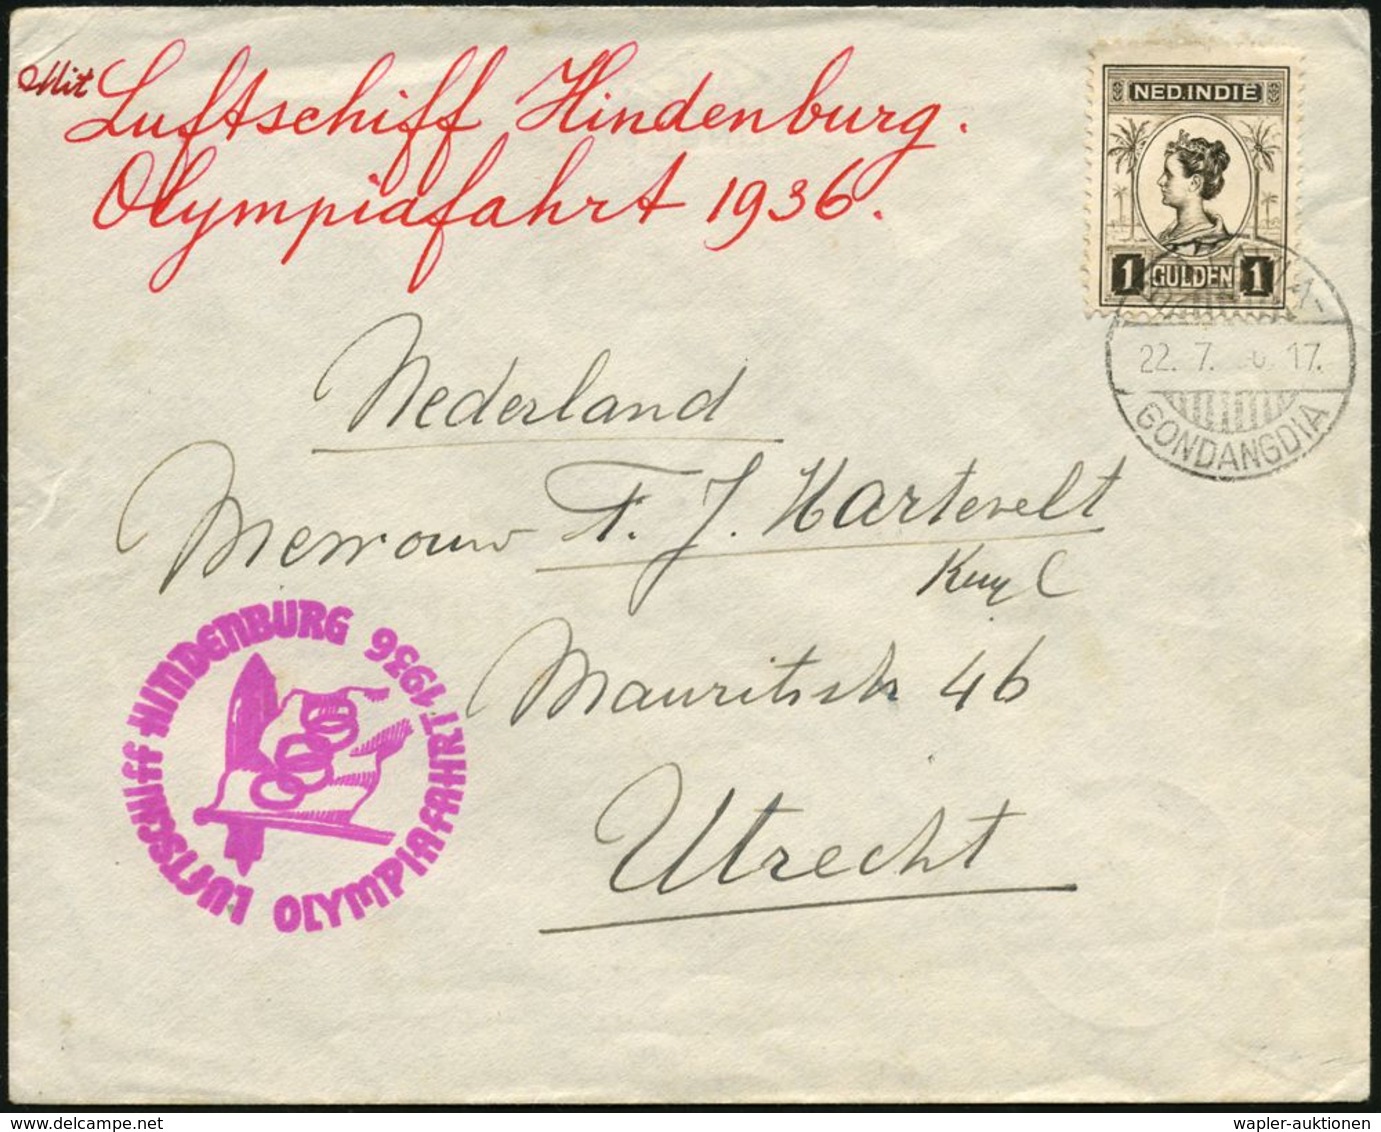 Mit Luftschiff Hindenburg.
Olympiafahrt 1936.
NED.INDIË
1 GULDEN 1
22. 7. 17.
GONDANGDIA
Nederland
Mevrouw F. J. Hartevelt
Kuyl
Mauritsstr 46
Utrecht
LUFTSCHIFF HINDENBURG
OLYMPIAFAHRT 1936
wapler-auktionen